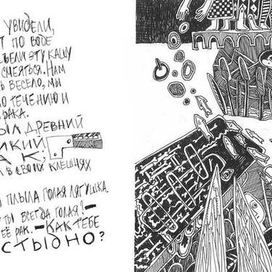 УВИДЕЛИ,
ПО ВОДЕ
ЭТУ КАШУ
СМЕЯТЬСЯ. НАМ
ВЕСЕЛО, МЫ
ТЕЧЕНИЮ И
РАКА.
ДРЕВНИЙ
В СВОИХ КЛЕШНЯХ
ПЛЫЛА ГОЛАЯ ЛЯГУШКА.
ТЫ ВСЕГДА ГОЛАЯ! –
ЕЁ РАК. – КАК ТЕБЕ
СТЫДНО?